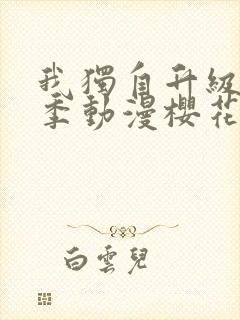 我獨自升級
季動漫櫻花
白雲兒